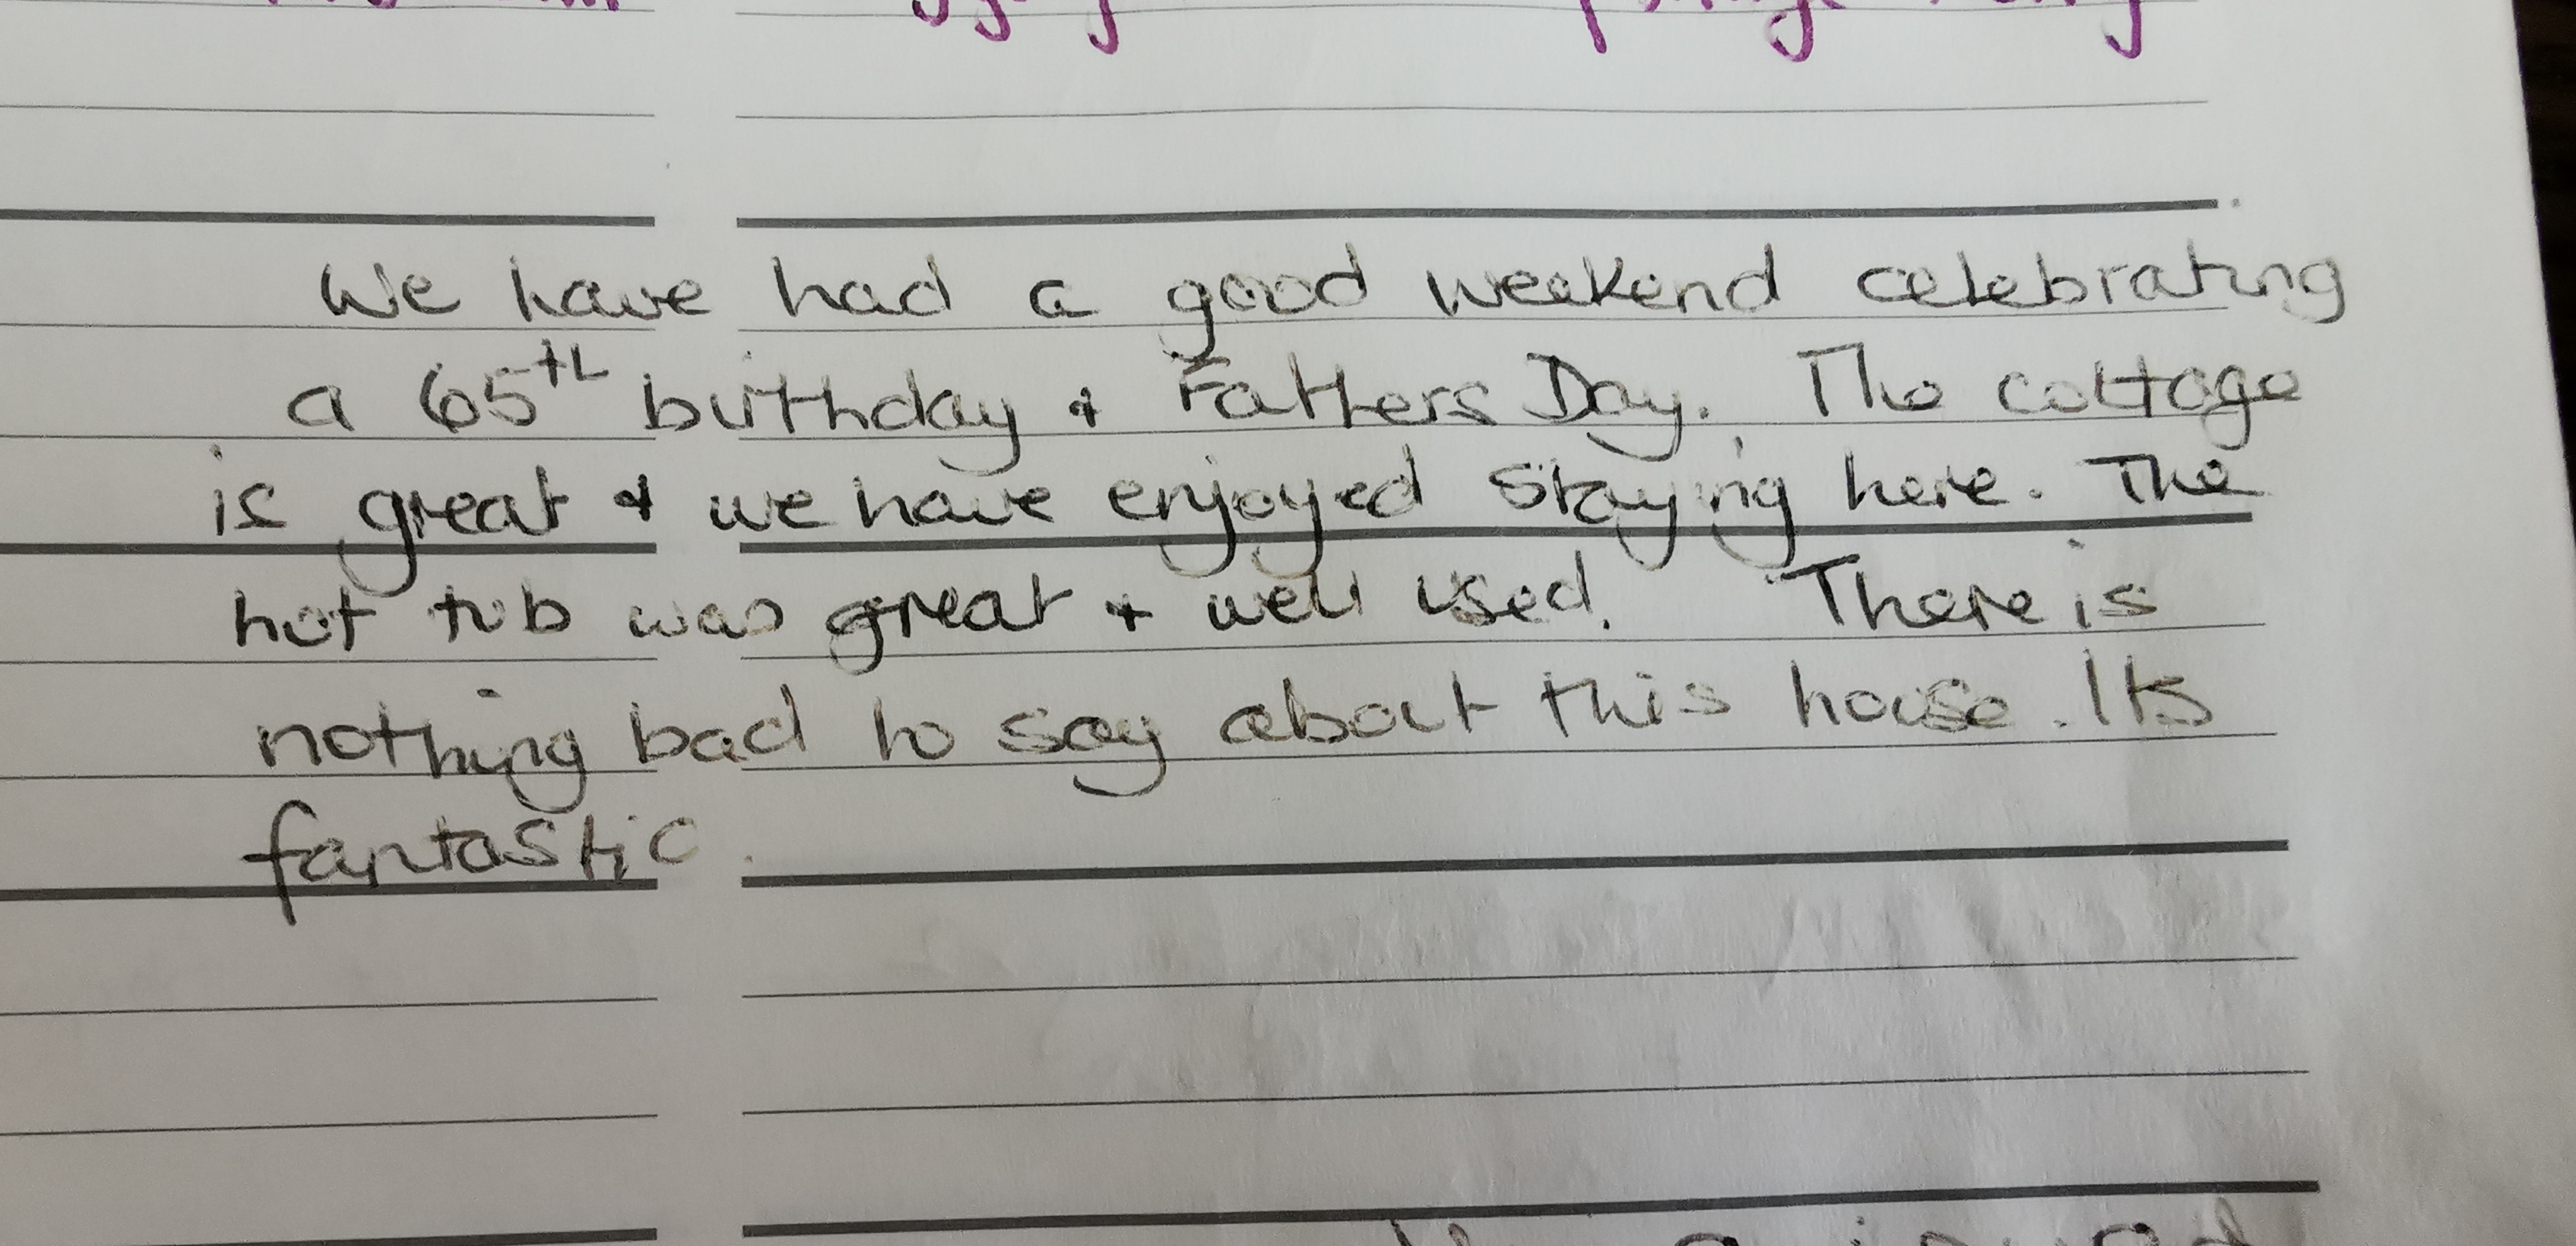 We have had a good weekend celebrating
a 65th birthday & Fathers Day. The cottage
is great & we have enjoyed staying here. The
hot tub was great & well used. There is
nothing bad to say about this house. Its
fantastic.